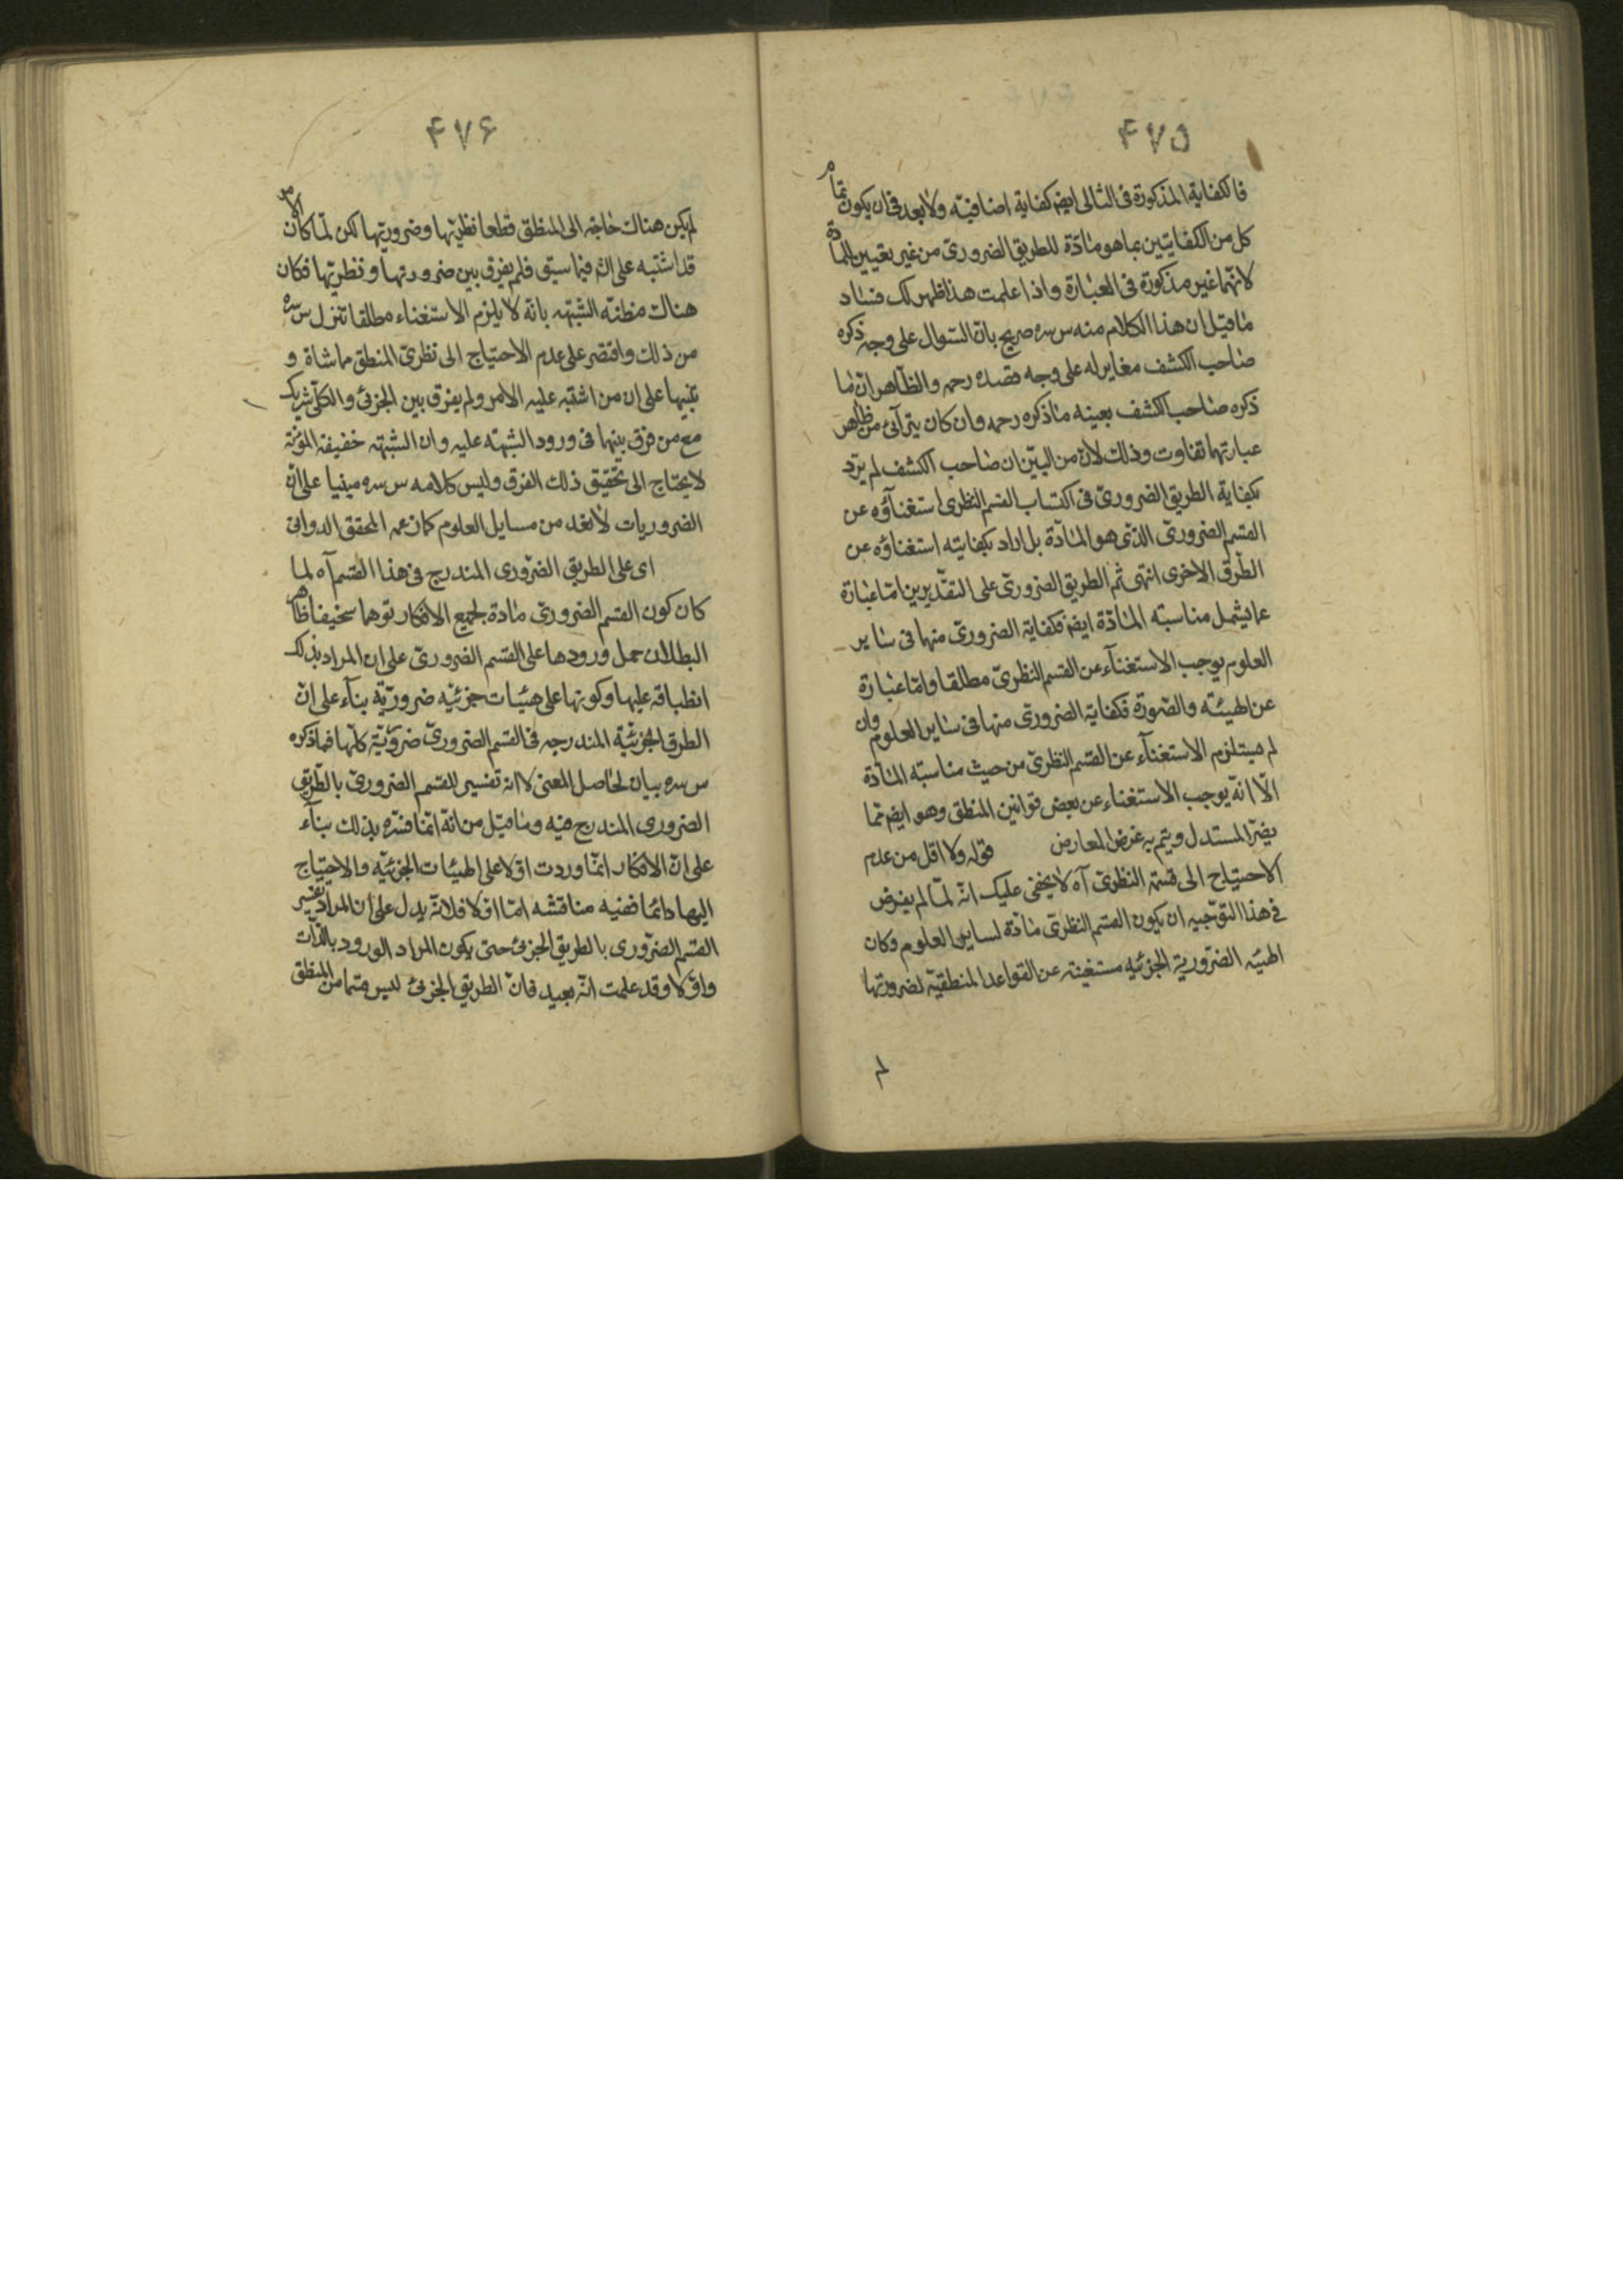 ۴۷۵
فالكفاية المذكورة فى التالى ايضا كفاية اضافية ولا بعد فى ان يكون تمام
كل من الكفايتين بما هو مادّة للطريق الضرورى من غير تعيين المادة
لانهما غير مذكورة فى العبارة واذا علمت هذا ظهر لك فساد
ما قيل ان هذا الكلام منه س سره صريح بان السؤال على وجه ذكره
صاحب الكشف مغاير له على وجه قصده رحمه والظاهر ان ما
ذكره صاحب الكشف بعينه ما ذكره رحمه وان كان يترآئى من ظاهر
عبارتهما تفاوت وذلك لان من البيّن ان صاحب الكشف لم يرد
بكفاية الطريق الضرورىّ فى اكتساب القسم النظرى استغنآؤه عن
القسم الضرورىّ الذى هو المادّة بل اراد بكفايته استغناؤه عن
الطرق الاخرى انتهى ثم الطريق الضرورىّ على التقديرين امّا عبارة
عما يشمل مناسبته المادّة ايضا فكفاية الضرورىّ منها فى ساير
العلوم يوجب الاستغنآء عن القسم النظرىّ مطلقا وامّا عبارة
عن الهيئة والصّورة فكفاية الضرورى منها فى ساير العلوم وان
لم يستلزم الاستغنآء عن القسم النظرىّ من حيث مناسبته المادّة
الّا انّه يوجب الاستغناء عن بعض قوانين المنطق وهو ايضا ممّا
يضرّ المستدل ويتم به غرض المعارض قوله ولا اقل من عدم
الاحتياج الى قسمه النظرىّ آه لا يخفى عليك انّه لمّا لم يفرض
فى هذا التوجيه ان يكون القسم النظرىّ مادّة لساير العلوم وكان
الهيئه الضرورية الجزئيه مستغنيه عن القواعد المنطقيّة لضرورتها
لم
۴۷۶
لم يكن هناك حاجة الى المنطق قطعا نظريتها وضروريتها لكن لمّا كان الامر
قد اشتبه على فيما سبق فلم يفرق بين ضروريتها ونظريتها فكان
هناك مظنّة الشبهه بانّه لا يلزم الاستغناء مطلقا تنزل س سره
من ذلك واقتصر على عدم الاحتياج الى نظرىّ المنطق مماشاة و
تنبيها على ان من اشتبه عليه الامر ولم يفرق بين الجزئى والكلّى شريك
مع من فرق بينهما فى ورود الشبهة عليه وان الشبهة خفيفة المؤنة
لا يحتاج الى تحقيق ذلك الفرق وليس كلامه س سره مبنيا على انّ
الضروريات لا تعد من مسايل العلوم كما زعمه المحقق الدوانى
اى على الطريق الضرورى المندرج فى هذا القسم آه لما
كان كون القسم الضرورىّ مادة لجميع الافكار توهما سخيفا ظاهر
البطلان حمل ورودها على القسم الضرورىّ على ان المراد بذلك
انطباقه عليها وكونها على هيئات جزئيه ضروريّة بنآء على انّ
الطرق الجزئيّة المندرجه فى القسم الضرورىّ ضروريّة كلّها فما ذكره
س سره بيان لحاصل المعنى لا انه تفسير للقسم الضرورىّ بالطّريق
الضرورى المندرج فيه وما قيل من انّه انّما فسّره بذلك بنآء
على انّ الافكار انمّا وردت اوّلا على الهيئات الجزئيّه والاحتياج
اليها دائما ففيه مناقشه امّا اوّلا فلانّه يدل على ان المراد تفسير
القسم الضّرورى بالطريق الجزئى حتى يكون المراد الورود بالذّات
واوّلا وقد علمت انّه بعيد فانّ الطريق الجزئى ليس قسما من المنطق